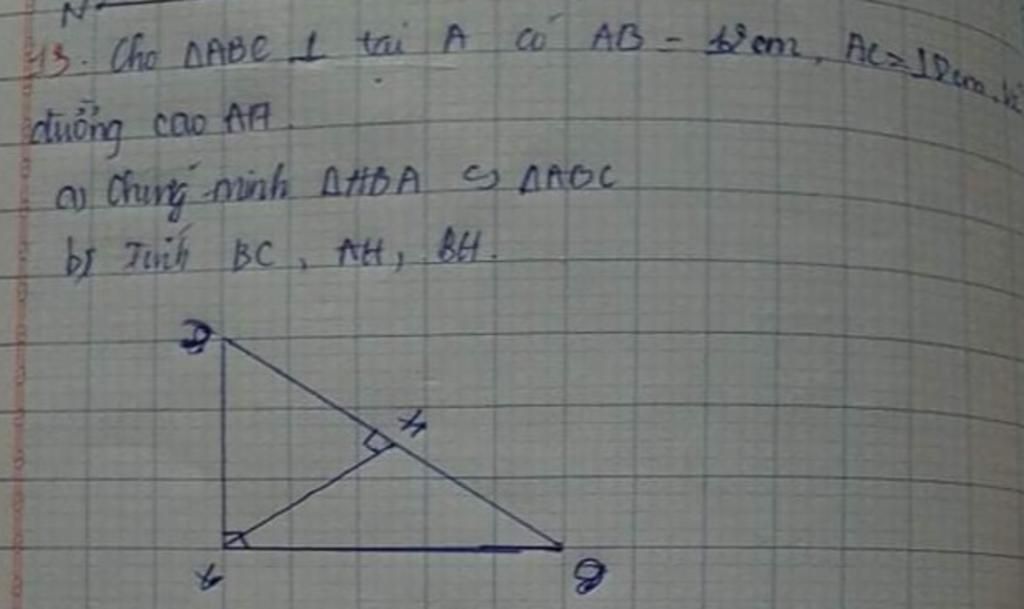 13. Cho ΔABC ⊥ tại A có AB = cm, AC = 12cm.
đường cao AH
a) Chứng minh ΔHBA ∽ ΔABC
b) Tính BC, AH, BH.
H
A
B